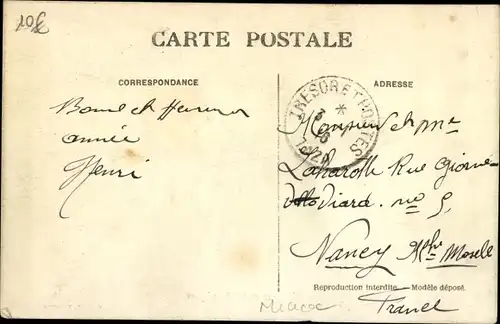 20f
CARTE POSTALE
CORRESPONDANCE
ADRESSE
Bonne et Heureuse
année
Henri
TRESOR ET POSTES
Monsieur et Mme
Rue
Viard. no 5
Nancy Mthe Moselle
Reproduction interdite. — Modèle déposé.
France
Maroc